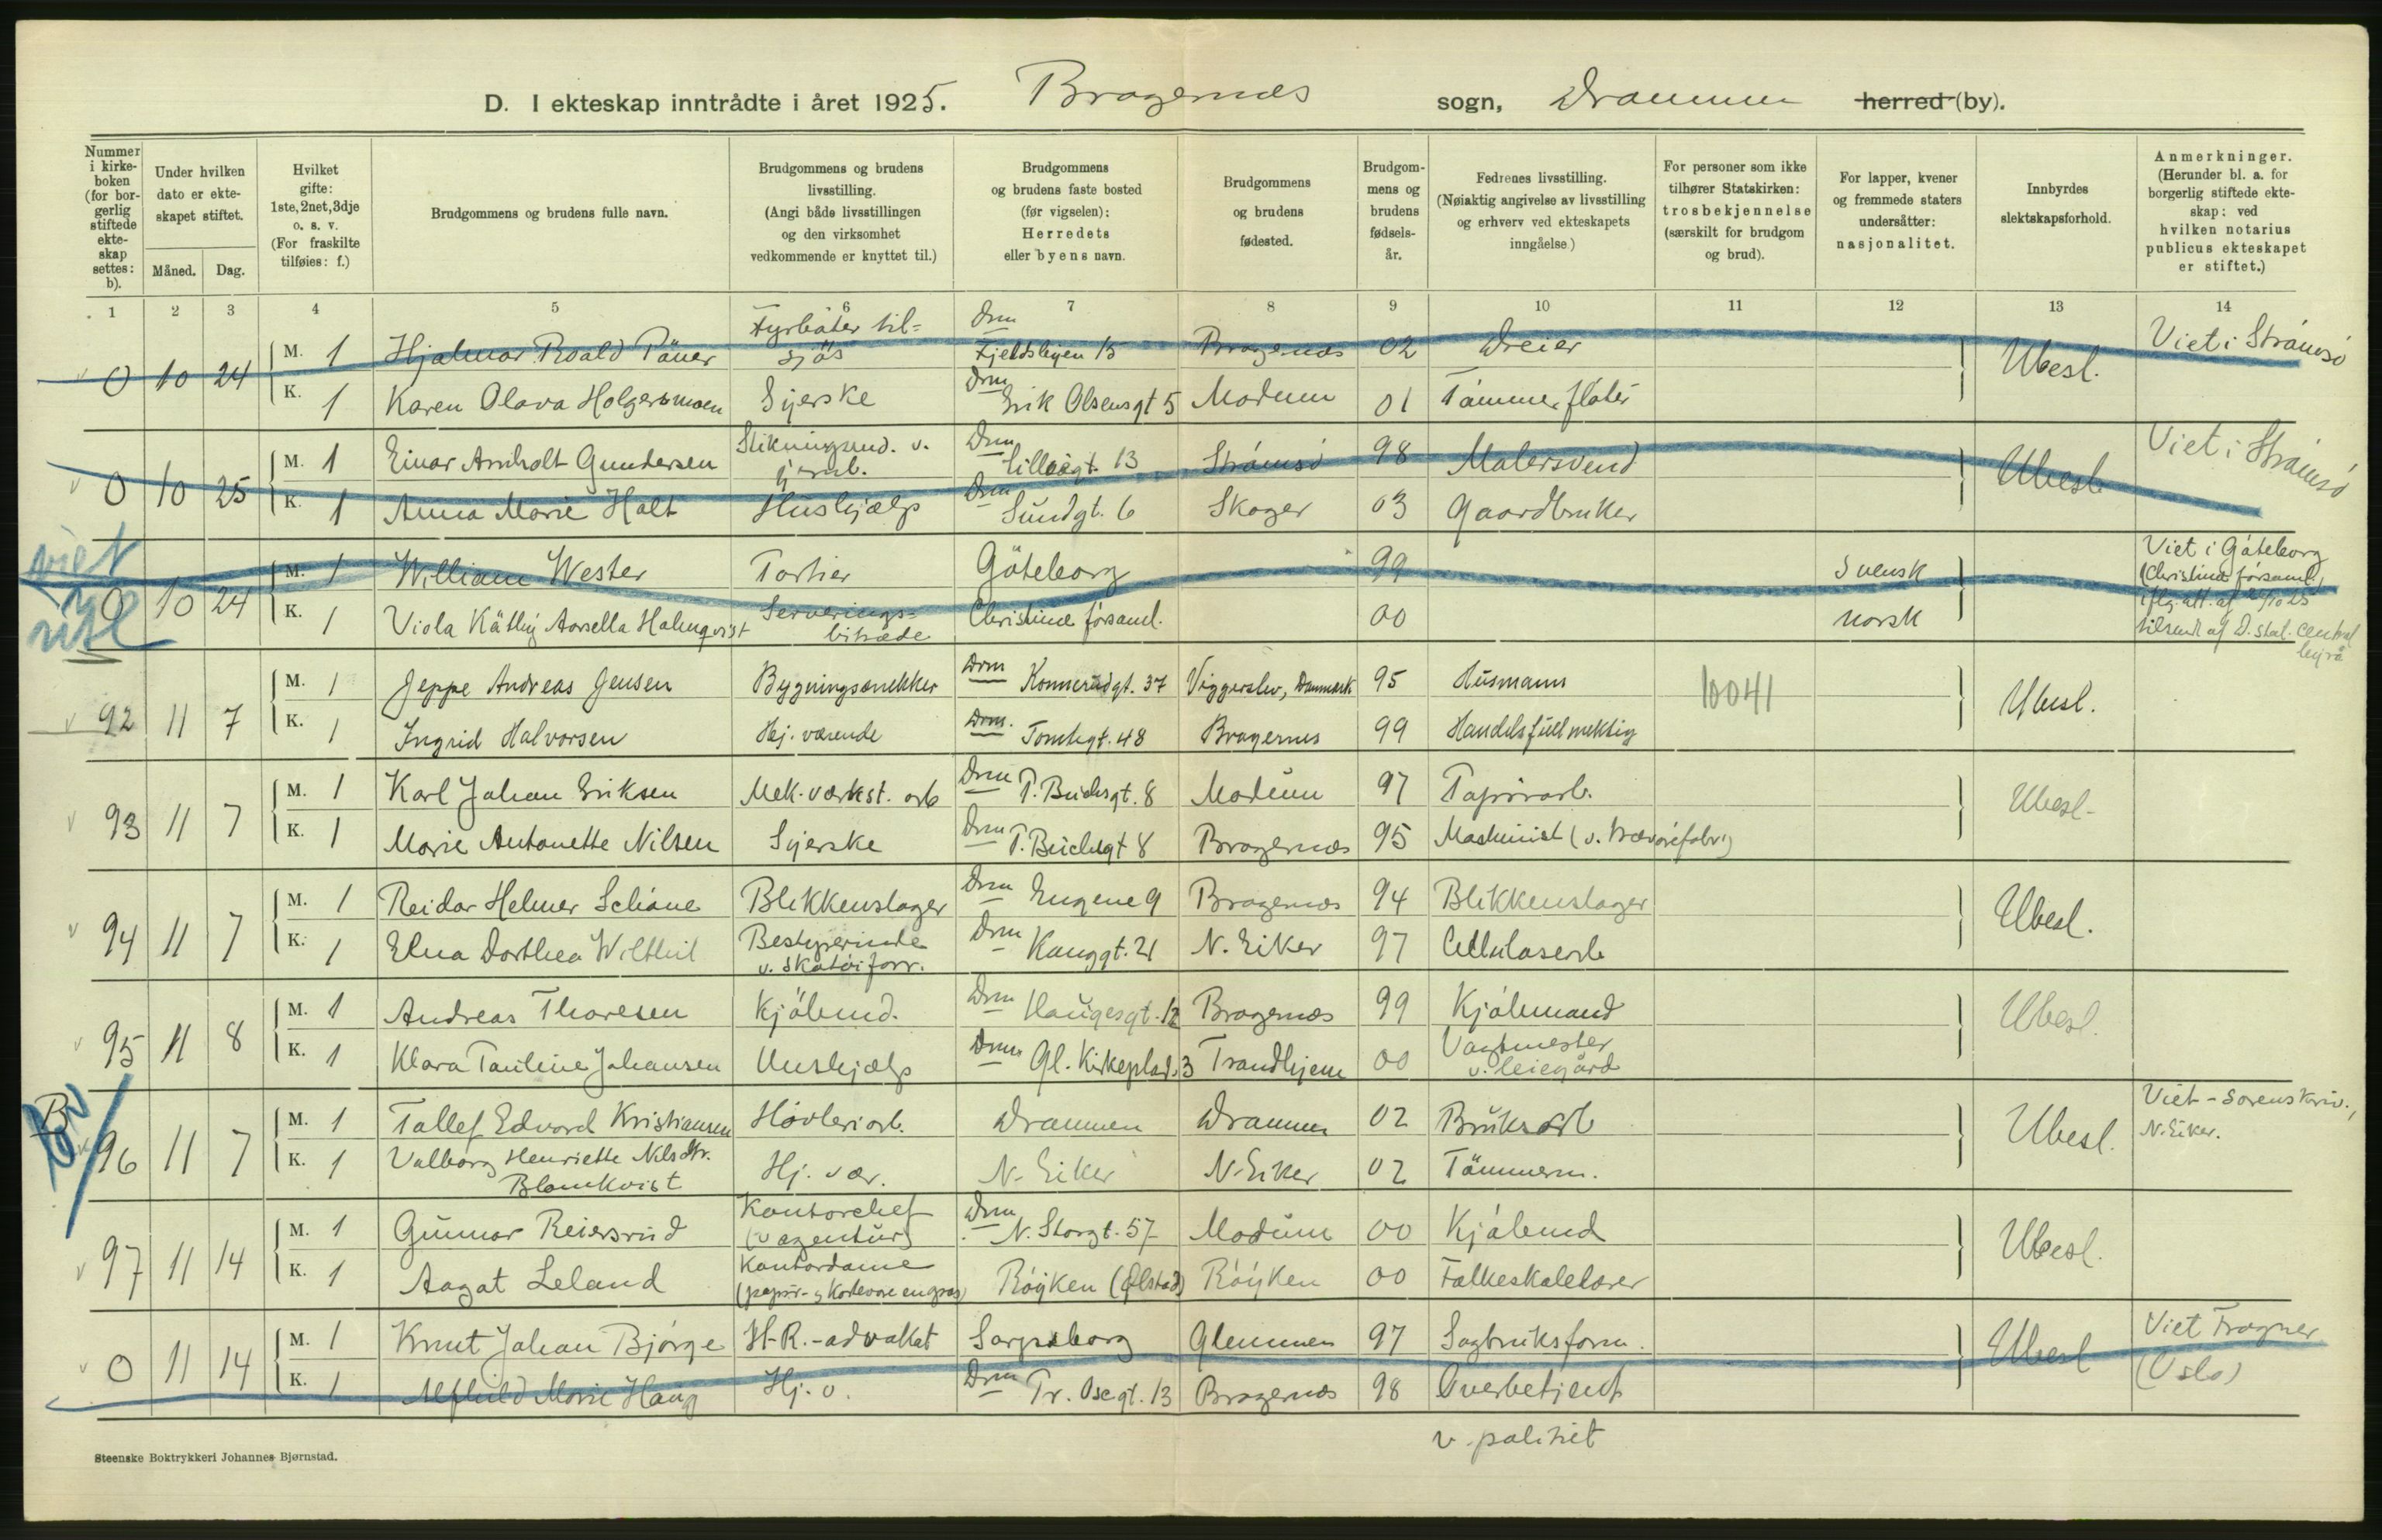 D. I ekteskap inntrådte i året 1925. Bragernes sogn, Drammen herred (by).
Nummer i kirkeboken (for borgerlig stiftede ekteskap settes: b).
Under hvilken dato er ekteskapet stiftet.
Måned. Dag.
Hvilket gifte: 1ste, 2net, 3dje o. s. v. (For fraskilte tilføies: f.)
Brudgommens og brudens fulle navn.
Brudgommens og brudens livsstilling. (Angi både livsstillingen og den virksomhet vedkommende er knyttet til.)
Brudgommens og brudens faste bosted (før vigselen): Herredets eller byens navn.
Brudgommens og brudens fødested.
Brudgommens og brudens fødselsår.
Fedrenes livsstilling. (Nøiaktig angivelse av livsstilling og erhverv ved ekteskapets inngåelse.)
For personer som ikke tilhører Statskirken: trosbekjennelse (særskilt for brudgom og brud).
For lapper, kvener og fremmede staters undersåtter: nasjonalitet.
Innbyrdes slektskapsforhold.
Anmerkninger. (Herunder bl. a. for borgerlig stiftede ekteskap: ved hvilken notarius publicus ekteskapet er stiftet.)
1 2 3 4 5 6 7 8 9 10 11 12 13 14
0 10 24 M. 1 Hjalmar Roald Påner Fyrbøter til sjøs Drm Fjeldsbyen 15 Bragernes 02 Dreier Ubesl. Viet i Strömsö
K. 1 Karen Olava Holgersmoen Syerske Drm Erik Olsensgt 5 Modum 01 Tømmerfløter
0 10 25 M. 1 Einar Arnholt Gundersen Stikningsend. v. jernb. Drm Lilleøgt. 13 Strömsö 98 Malersvend Ubesl Viet i Strömsö
K. 1 Anna Marie Holt Hushjælp Drm Sundgt. 6 Skoger 03 Gaardbruker
viet
0 10 24 M. 1 William Wester Portier Göteborg 99 Svensk Viet i Göteborg (Christine församl.)
K. 1 Viola Käthy Aorsella Holmqvist Serveringsbitræde Christine församl. 00 norsk iflg. att. af 24/10 25 tilsendt af D. stat. centralbyrå
92 11 7 M. 1 Jeppe Andreas Jensen Bygningssnekker Drm Konnerudgt. 37 Viggerslev, Danmark 95 Husmann 10041 Ubesl.
K. 1 Ingrid Halvorsen Hj. værende Drm. Tomtegt. 48 Bragernes 99 Handelsfullmektig
93 11 7 M. 1 Karl Johan Eriksen Mek. værkst. arb Drm P. Buchsgt. 8 Modum 97 Papirarb. Ubesl.
K. 1 Marie Antonette Nilsen Syerske Drm P. Buchsgt 8 Bragernes 95 Maskinist (v. trævarefabr.)
94 11 7 M. 1 Reidar Helmer Schöne Blikkenslager Drm Engene 9 Bragernes 94 Blikkenslager Ubesl.
K. 1 Elna Dorthea Wilthil Bestyrerinde v. skotøiforr. Drm Konggt. 21 N. Eiker 97 Cellulosearb
95 11 8 M. 1 Andreas Thoresen Kjøbmd. Drm Haugesgt. 12 Bragernes 99 Kjøbmand Ubesl.
K. 1 Klara Pauline Johansen Hushjælp Drm Gl. Kirkeplads 3 Trondhjem 00 Vagtmester v. leiegård
B
96 11 7 M. 1 Tollef Edvard Kristiansen Høvleriarb. Drammen Drammen 02 Bruksarb Ubesl. Viet - Sorenskriv., N. Eiker.
K. 1 Valborg Henriette Nilsdtr. Blomkvist Hj. vær. N. Eiker N. Eiker 02 Tømmerm.
97 11 14 M. 1 Gunnar Reiersrud Kontorchef (v agentur) Drm N. Storgt. 57 Modum 00 Kjøbmd Ubesl.
K. 1 Aagot Leland Kontordame (papir- & kortevare engros) Røyken (Ølstad) Røyken 00 Folkeskolelærer
0 11 14 M. 1 Knut Johan Bjørge H-R.-advokat Sarpsborg Glemmen 97 Sagbruksform. Ubesl Viet Frogner (Oslo)
K. 1 Alfhild Marie Haug Hj. v. Drm Tr. Oscgt. 13 Bragernes 98 Overbetjent
v. politiet
Steenske Boktrykkeri Johannes Bjørnstad.